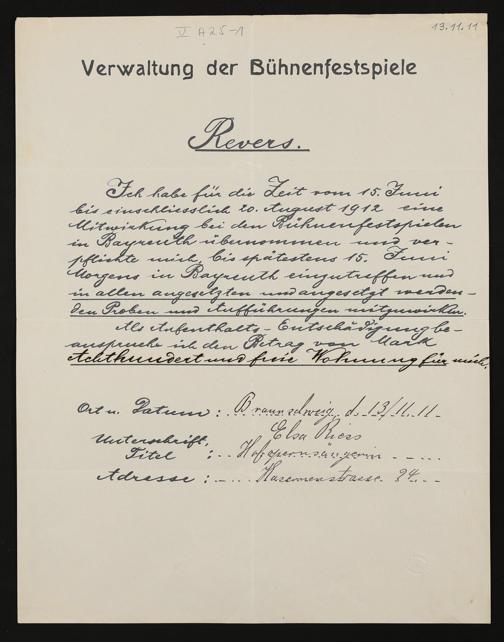 V A 25-1
13.11.11
Verwaltung der Bühnenfestspiele
Revers.
Ich habe für die Zeit vom 15. Juni
bis einschliesslich 20. August 1912 eine
Mitwirkung bei den Bühnenfestspielen
in Bayreuth übernommen und ver-
pflichte mich, bis spätestens 15. Juni
Morgens in Bayreuth einzutreffen und
in allen angesetzten und angesetzt werden-
den Proben und Aufführungen mitzuwirken.
Als Aufenthalts-Entschädigung be-
anspruche ich den Betrag von Mark
Achthundert und freie Wohnung für mich.
Ort u. Datum: Braunschweig, d. 13/11.11.
Unterschrift, Elsa
Titel: Hofopernsängerin
Adresse: